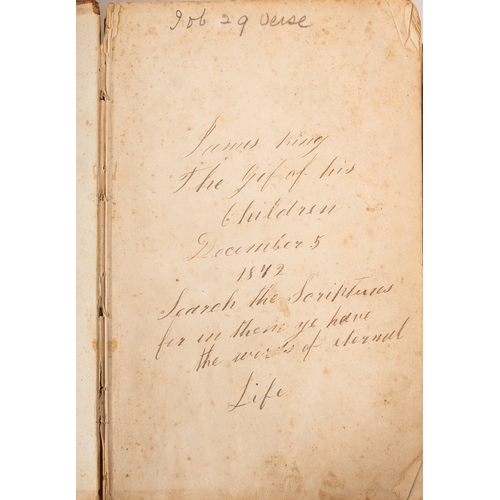 Job 29 Verse
James King
The Gif of his
Children
December 5
1872
Search the Scriptures
for in them ye have
the words of eternal
Life